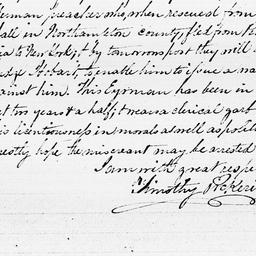 German preacher who, when rescued from
all in Northampton county, fled from
to New York, & by tomorrows post they will
Hobart, to enable him to issue a
against him. This Clergyman has been in
two years & a half; & wears a clerical garb
is licentiousness in morals as well as politi
hope the miscreant may be arrested
I am with great respe
Timothy Pickeri